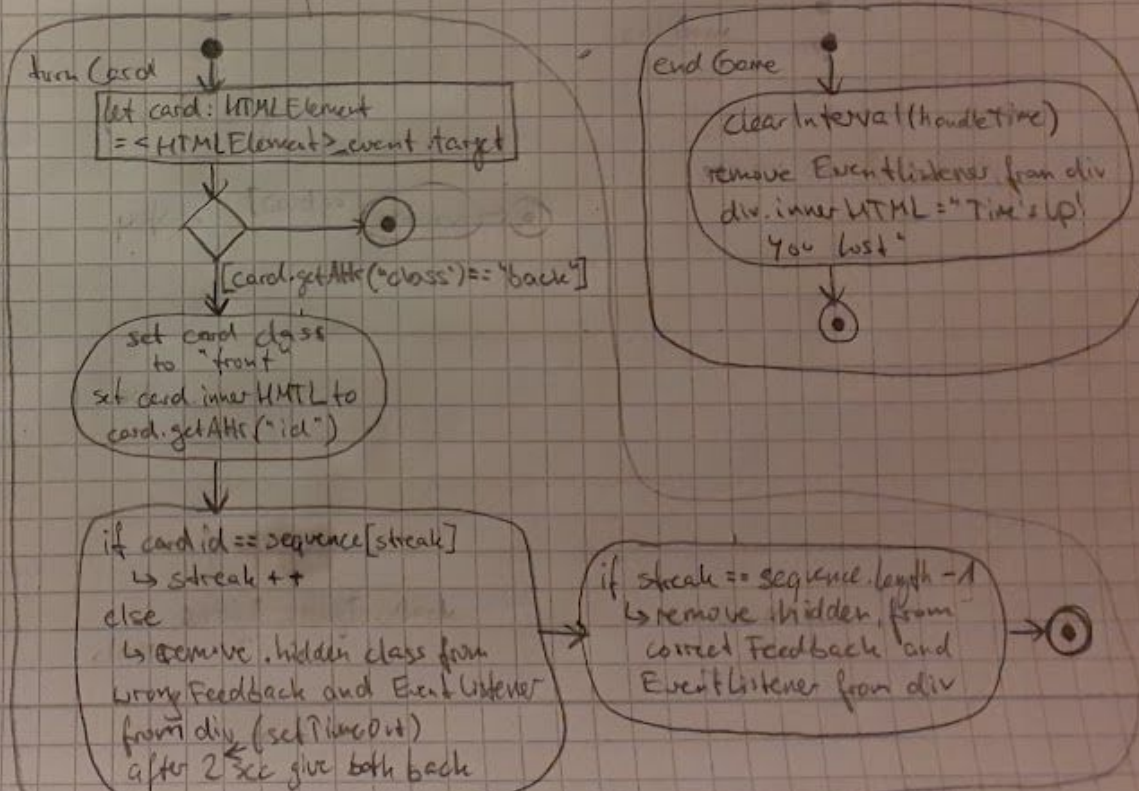 turnCard
let card: HTMLElement
= <HTMLElement>_event.target
[card.getAttr("class") == "back"]
set card class
to "front"
set card innerHMTL to
card.getAttr("id")
if card id == sequence[streak]
↳ streak ++
else
↳ remove .hidden class from
wrongFeedback and EventListener
from div (setTimeOut)
after 2 sec give both back
if streak == sequence.length -1
↳ remove .hidden from
correct Feedback and
EventListener from div
endGame
clearInterval(handleTime)
remove Eventlistener from div
div.innerHTML = "Time's Up!
You Lost"